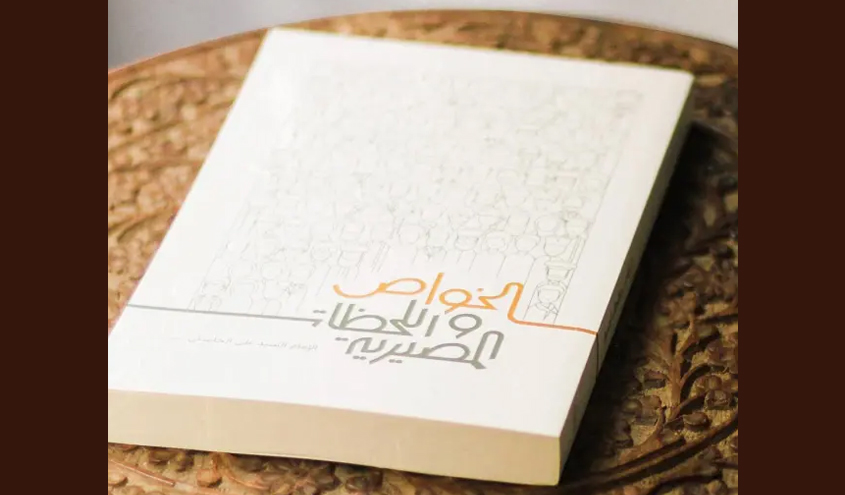 الخواص
و اللحظات
المصيرية
الإمام السيد علي الخامنئي